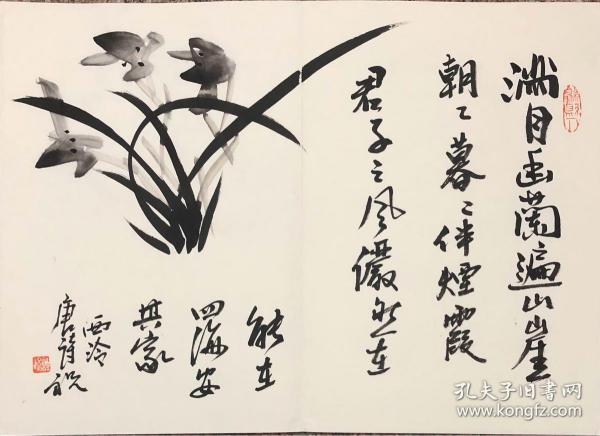 满目幽蘭遍山崖
朝々暮々伴煙霞
君子之风儼然在
能在
四海安
其家
西泠
唐詩祝
孔夫子旧书网
www.kongfz.com